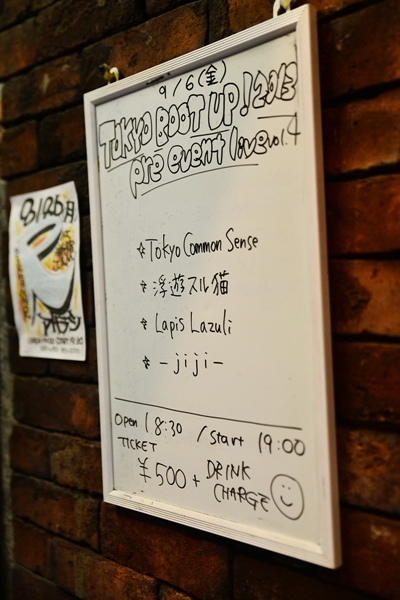 9/6(金)
TOKYO BOOT UP! 2013
pre event live vol.4
☆Tokyo Common Sense
☆浮遊スル猫
☆Lapis Lazuli
☆-jiji-
Open 18:30 / Start 19:00
TICKET
¥500+ DRINK
CHARGE
8/26月